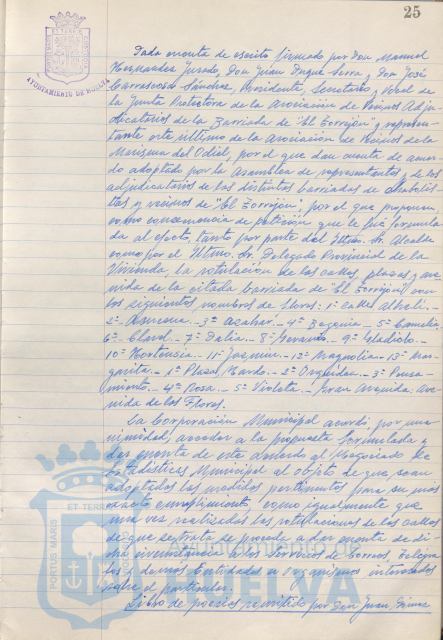 25
AYUNTAMIENTO DE HUELVA
Dada cuenta de escrito firmado por Don Manuel
Hernandez Jurado, Don Juan Duque Serra y Don José
Carrascosa Sánchez, Presidente, Secretario y Vocal de
la Junta Protectora de la Asociación de Vecinos Adju
dicatarios de la Barriada de "El Torrejón" y represen-
tante este último de la Asociación de Vecinos de la
Marisma del Odiel, por el que dan cuenta de acuer
do adoptado por la Asamblea de representantes y de los
adjudicatarios de las distintas barriadas de chabolis
tas y vecinos de "El Torrejón", por el que proponen
como consecuencia de petición que le fué formula
da al efecto, tanto por parte del Iltmo. Sr. Alcalde
como por el Iltmo. Sr. Delegado Provincial de la
Vivienda, la rotulación de las calles, plazas y ave
nida de la citada barriada de "El Torrejón" con
los siguientes nombres de flores: 1ª Calle Alhelí.-
2ª- Azucena.- 3ª Azahar.- 4ª Begonia.- 5ª Camelia
6ª- Clavel.- 7ª Dalia.- 8ª Geranio.- 9ª Gladiolo.-
10ª Hortensia.- 11ª Jazmín.- 12ª Magnolia.- 13ª Mar-
garita.- 1ª Plaza, Nardo.- 2ª Orquídea.- 3ª Pensa-
miento.- 4ª Rosa.- 5ª Violeta.- Gran Avenida: Ave
nida de las Flores.
La Corporación Municipal acordó por una-
nimidad, acceder a la propuesta formulada y
dar cuenta de este acuerdo al Negociado de
Estadística Municipal al objeto de que sean
adoptadas las medidas pertinentes para su más
exacto cumplimiento, como igualmente que
una vez realizadas las rotulaciones de las calles
de que se trata se proceda a dar cuenta de di
cha circunstancia a los Servicios de Correos Telegra
fos y demás Entidades u Organismos interesados
sobre el particular.
Libro de poesías remitido por Don Juan Gómez
PORTUS MARIS
ET TERRAE
HUELVA